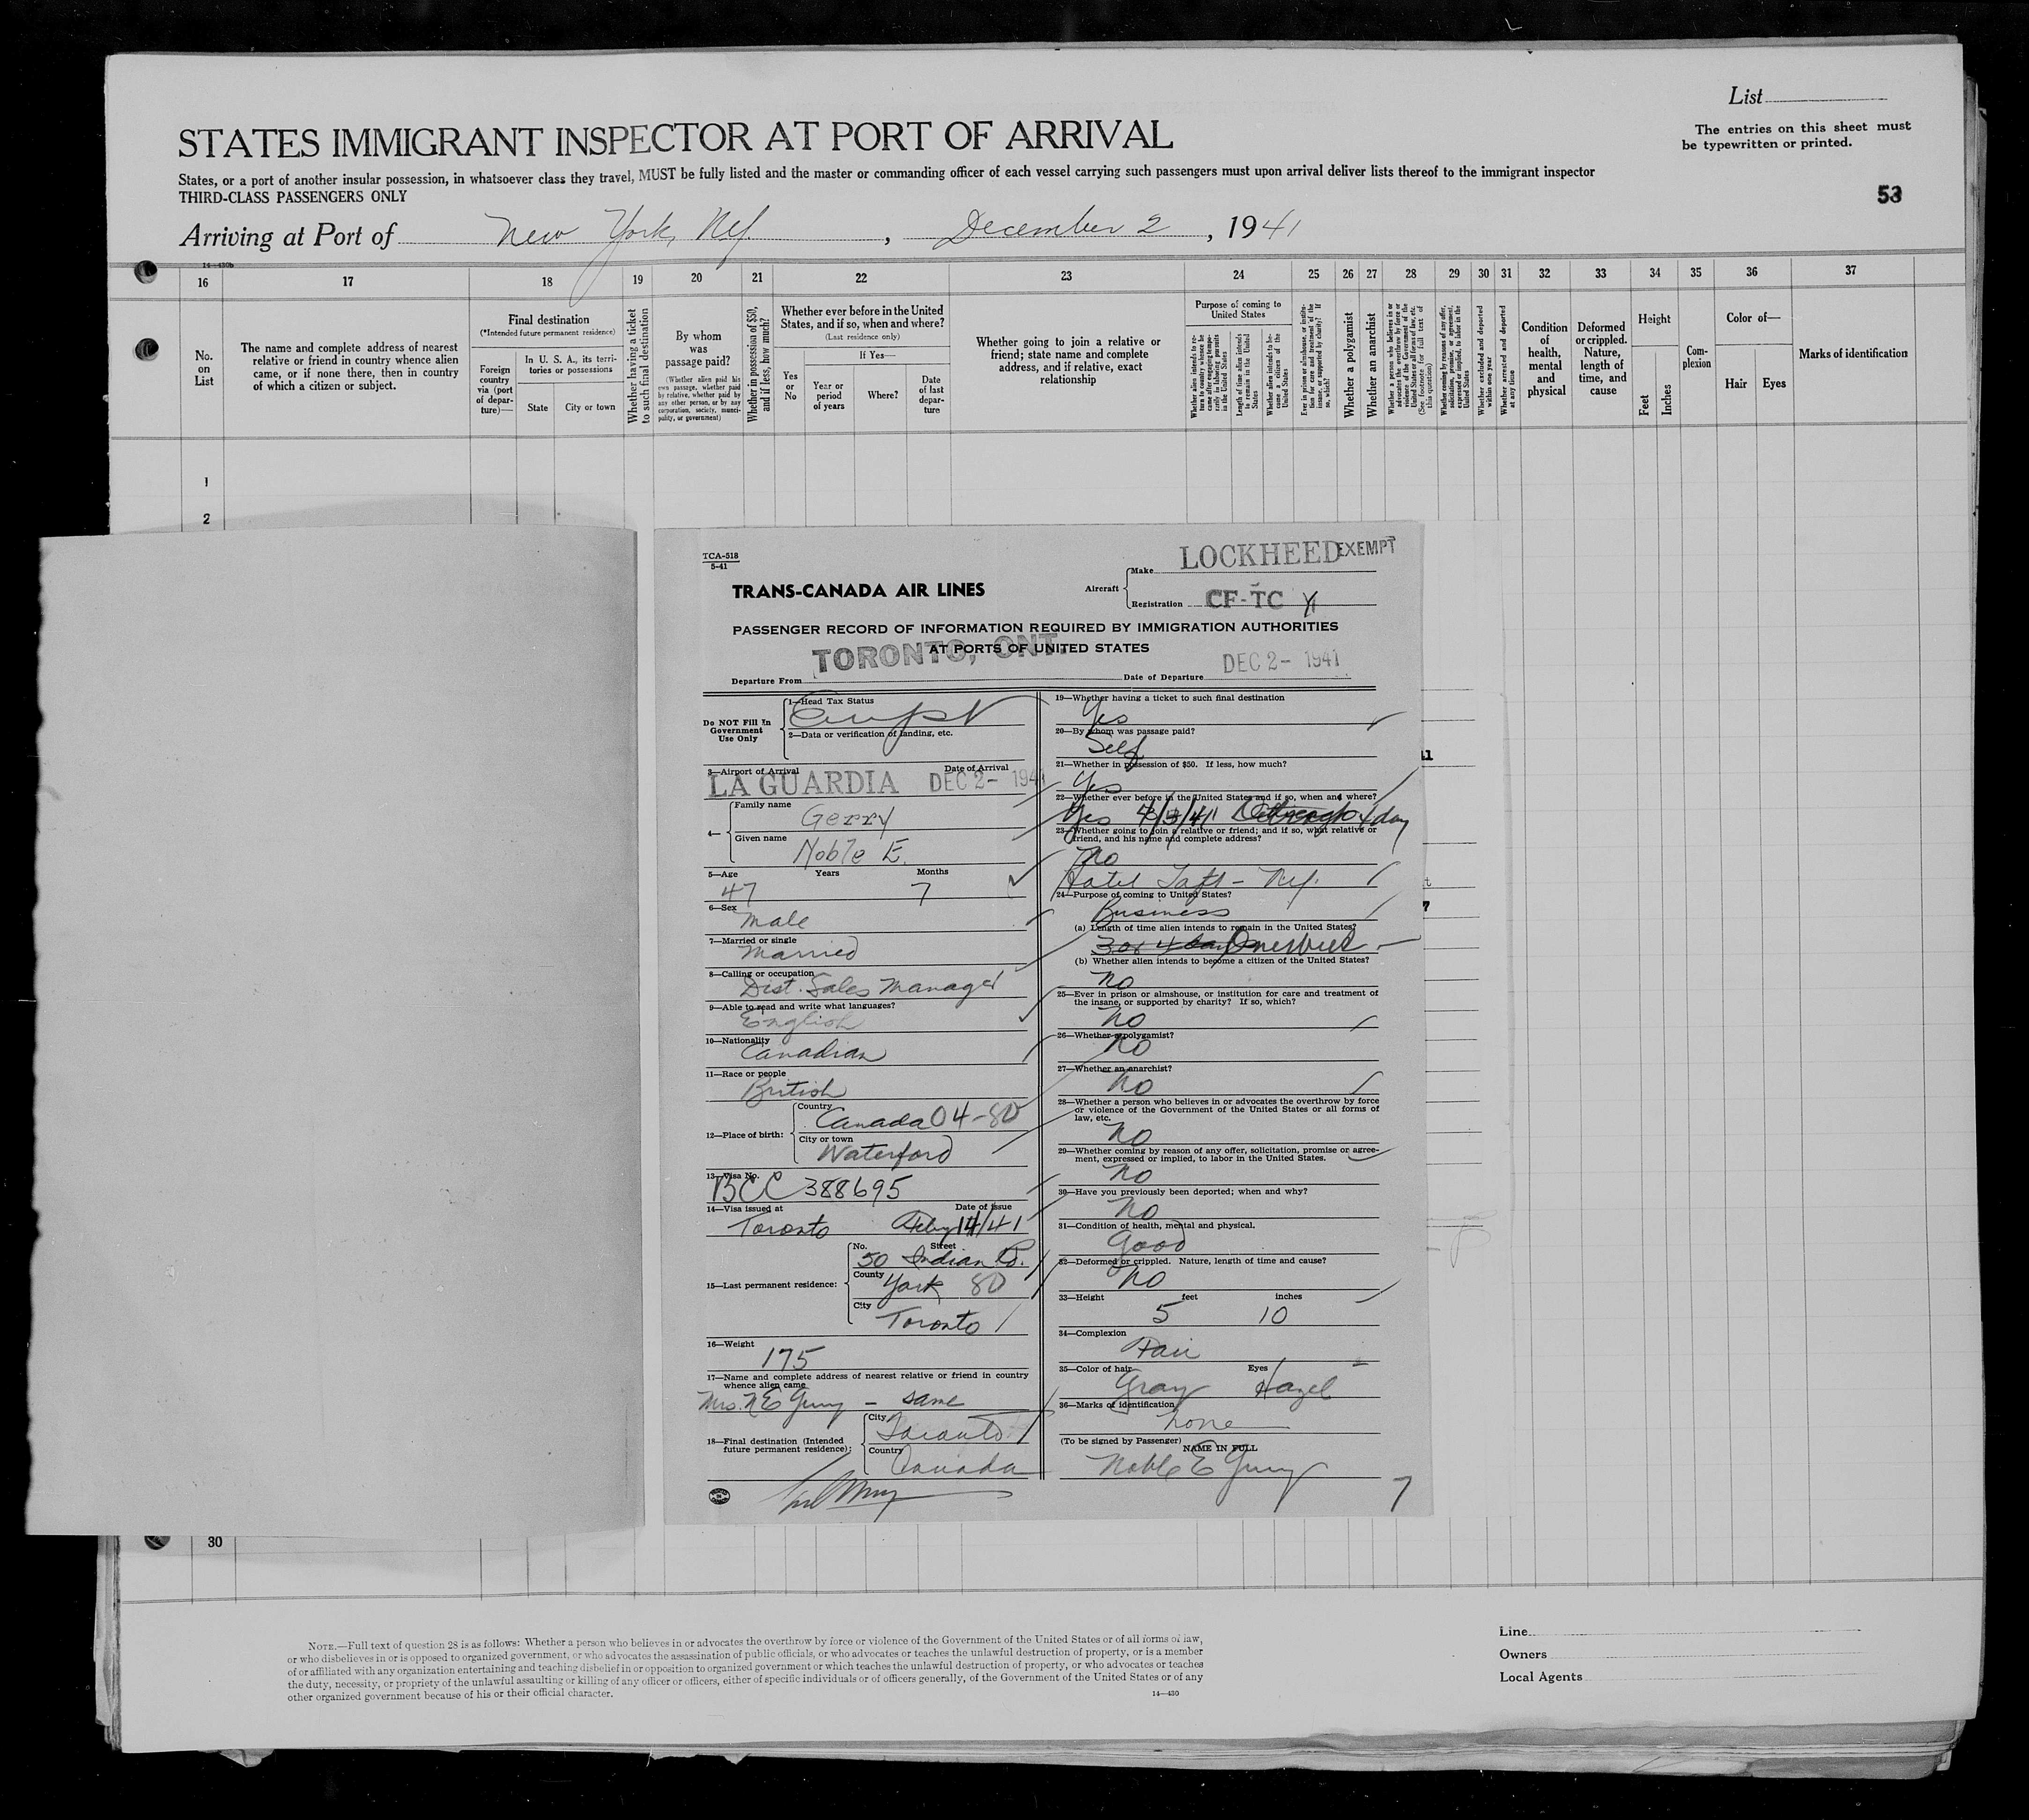 List
The entries on this sheet must
be typewritten or printed.
STATES IMMIGRANT INSPECTOR AT PORT OF ARRIVAL
States, or a port of another insular possession, in whatsoever class they travel, MUST be fully listed and the master or commanding officer of each vessel carrying such passengers must upon arrival deliver lists thereof to the immigrant inspector
THIRD-CLASS PASSENGERS ONLY
53
Arriving at Port of New York, N.Y. , December 2 , 1941
14—430b
16 17 18 19 20 21 22 23 24 25 26 27 28 29 30 31 32 33 34 35 36 37
No.
on
List
The name and complete address of nearest
relative or friend in country whence alien
came, or if none there, then in country
of which a citizen or subject.
Final destination
(*Intended future permanent residence)
Foreign
country
via (port
of depar-
ture)—
In U. S. A., its terri-
tories or possessions
State City or town
Whether having a ticket
to such final destination
By whom
was
passage paid?
(Whether alien paid his
own passage, whether paid
by relative, whether paid by
any other person, or by any
corporation, society, munici-
pality, or government)
Whether in possession of $50,
and if less, how much?
Whether ever before in the United
States, and if so, when and where?
(Last residence only)
Yes
or
No
If Yes—
Year or
period
of years
Where?
Date
of last
depar-
ture
Whether going to join a relative or
friend; state name and complete
address, and if relative, exact
relationship
Purpose of coming to
United States
Whether alien intends to re-
turn to country whence he
came after engaging tempo-
rarily in laboring pursuits
in the United States
Length of time alien intends
to remain in the United
States
Whether alien intends to be-
come a citizen of the
United States
Ever in prison or almshouse, or institu-
tion for care and treatment of the
insane, or supported by charity? If
so, which?
Whether a polygamist
Whether an anarchist
Whether a person who believes in or
advocates the overthrow by force or
violence of the Government of the
United States or all forms of law, etc.
(See footnote for full text of
this question)
Whether coming by reasons of any offer,
solicitation, promise, or agreement,
expressed or implied, to labor in the
United States
Whether excluded and deported
within one year
Whether arrested and deported
at any time
Condition
of
health,
mental
and
physical
Deformed
or crippled.
Nature,
length of
time, and
cause
Height
Feet
Inches
Com-
plexion
Color of—
Hair Eyes
Marks of identification
1
2
TCA-518
5-41
TRANS-CANADA AIR LINES
Aircraft
Make LOCKHEED EXEMPT
Registration CF-TC Y
PASSENGER RECORD OF INFORMATION REQUIRED BY IMMIGRATION AUTHORITIES
AT PORTS OF UNITED STATES
Departure From TORONTO, ONT. Date of Departure DEC 2- 1941
Do NOT Fill In
Government
Use Only
1—Head Tax Status
2—Data or verification of landing, etc.
3—Airport of Arrival Date of Arrival
LA GUARDIA DEC 2- 1941
4—
Family name
Gerry
Given name
Noble E.
5—Age Years Months
47 7
6—Sex
Male
7—Married or single
Married
8—Calling or occupation
Dist. Sales Manager
9—Able to read and write what languages?
English
10—Nationality
Canadian
11—Race or people
British
12—Place of birth:
Country
Canada 04-80
City or town
Waterford
13—Visa No.
BCC 388695
14—Visa issued at Date of issue
Toronto Feby 14/41
15—Last permanent residence:
No. Street
50 Indian Rd.
County
York 80
City
Toronto
16—Weight
175
17—Name and complete address of nearest relative or friend in country
whence alien came
Mrs. N E Gerry – same
18—Final destination (Intended
future permanent residence):
City
Toronto
Country
Canada
19—Whether having a ticket to such final destination
Yes
20—By whom was passage paid?
Self
21—Whether in possession of $50. If less, how much?
Yes
22—Whether ever before in the United States and if so, when and where?
Yes 4/3/41 1 day
23—Whether going to join a relative or friend; and if so, what relative or
friend, and his name and complete address?
No
Hotel Taft – N.Y.
24—Purpose of coming to United States?
Business
(a) Length of time alien intends to remain in the United States?
3 or 4 days One week
(b) Whether alien intends to become a citizen of the United States?
No
25—Ever in prison or almshouse, or institution for care and treatment of
the insane, or supported by charity? If so, which?
No
26—Whether a polygamist?
No
27—Whether an anarchist?
No
28—Whether a person who believes in or advocates the overthrow by force
or violence of the Government of the United States or all forms of
law, etc.
No
29—Whether coming by reason of any offer, solicitation, promise or agree-
ment, expressed or implied, to labor in the United States.
No
30—Have you previously been deported; when and why?
No
31—Condition of health, mental and physical.
Good
32—Deformed or crippled. Nature, length of time and cause?
No
33—Height feet inches
5 10
34—Complexion
Fair
35—Color of hair Eyes
Gray Hazel
36—Marks of identification
none
(To be signed by Passenger) NAME IN FULL
Noble E Gerry
7
30
NOTE.—Full text of question 28 is as follows: Whether a person who believes in or advocates the overthrow by force or violence of the Government of the United States or of all forms of law,
or who disbelieves in or is opposed to organized government, or who advocates the assassination of public officials, or who advocates or teaches the unlawful destruction of property, or is a member
of or affiliated with any organization entertaining and teaching disbelief in or opposition to organized government or which teaches the unlawful destruction of property, or who advocates or teaches
the duty, necessity, or propriety of the unlawful assaulting or killing of any officer or officers, either of specific individuals or of officers generally, of the Government of the United States or of any
other organized government because of his or their official character.
14—430
Line
Owners
Local Agents